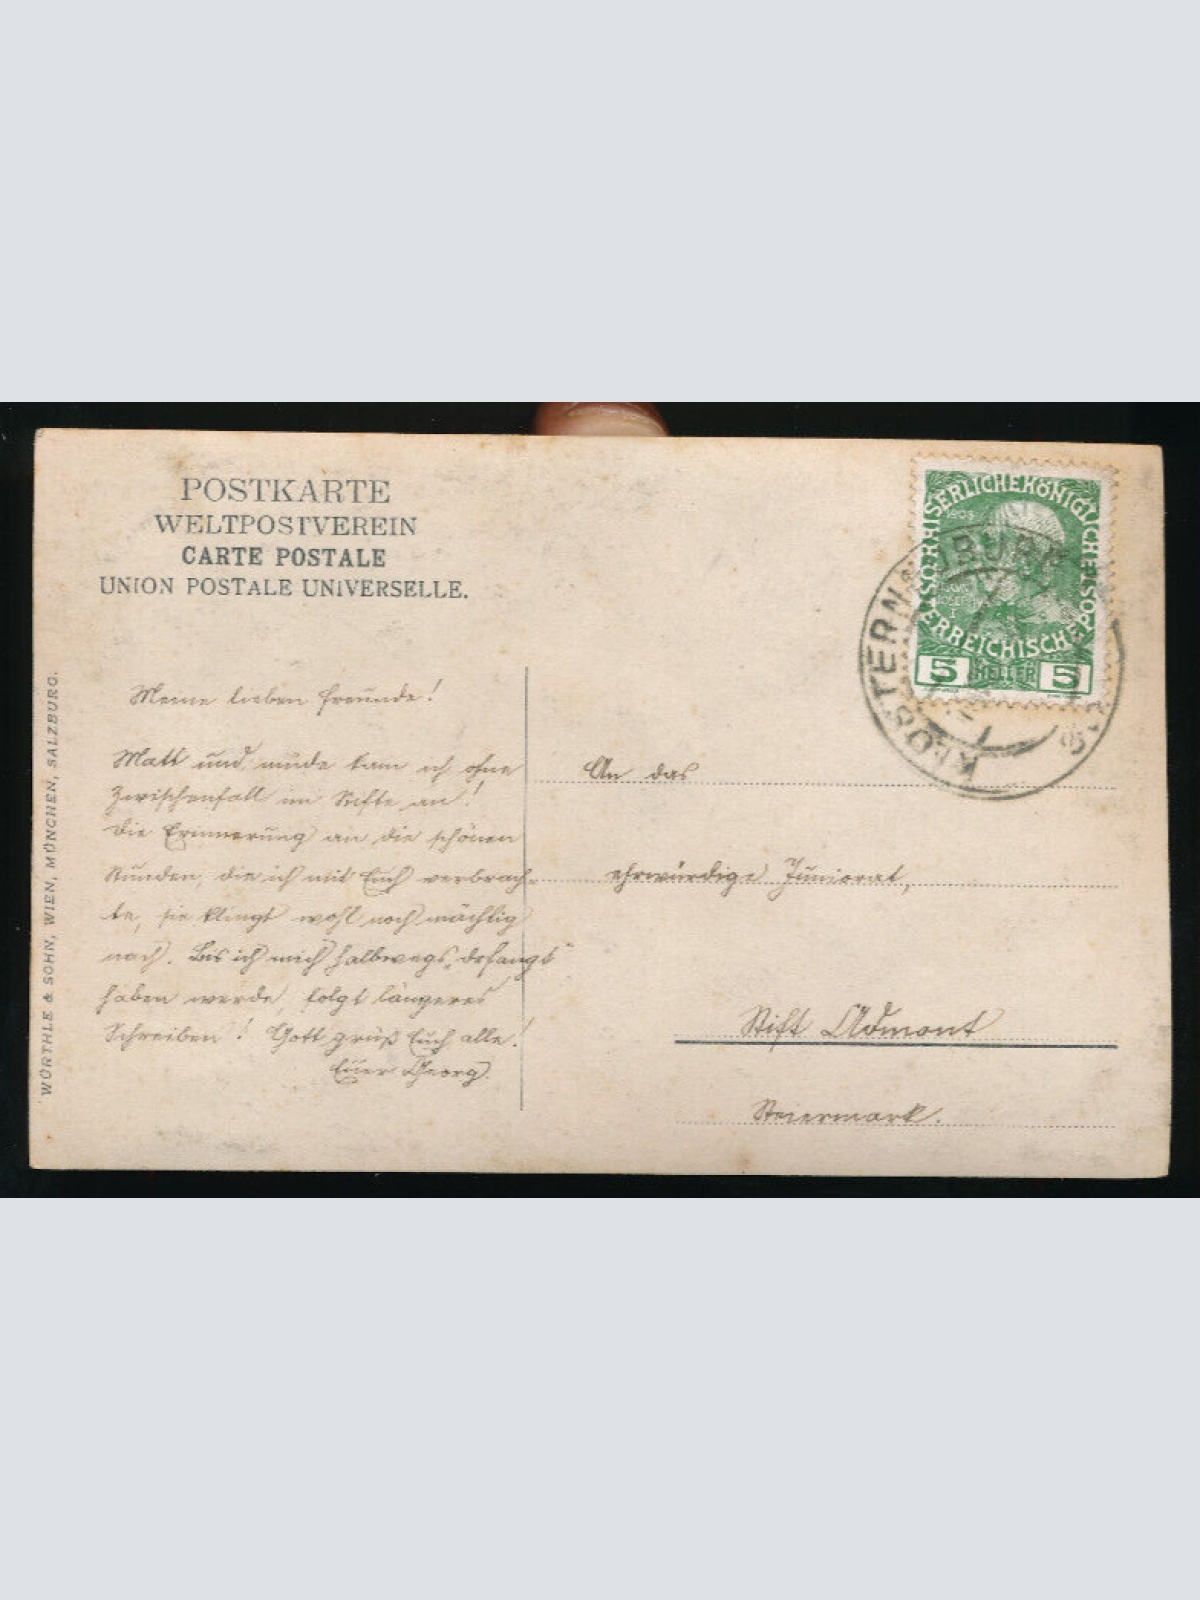 POSTKARTE
WELTPOSTVEREIN
CARTE POSTALE
UNION POSTALE UNIVERSELLE.
WÜRTHLE & SOHN, WIEN, MÜNCHEN, SALZBURG.
Meine lieben Freunde!
Matt und müde kam ich ohne
Zwischenfall im Stifte an!
Die Erinnerung an die schönen
Stunden, die ich mit Euch verbrach-
te, sie klingt wohl noch mächtig
nach. Bis ich mich halbwegs
haben werde, folgt längeres
Schreiben! Gott grüß Euch alle!
Euer Georg.
KAISERLICHE KÖNIGLICHE ÖSTERREICHISCHE POST
1908
FRANZ JOSEF I
5 HELLER 5
KLOSTERNEUBURG
An das
ehrwürdige Juniorat,
Stift Admont
Steiermark.